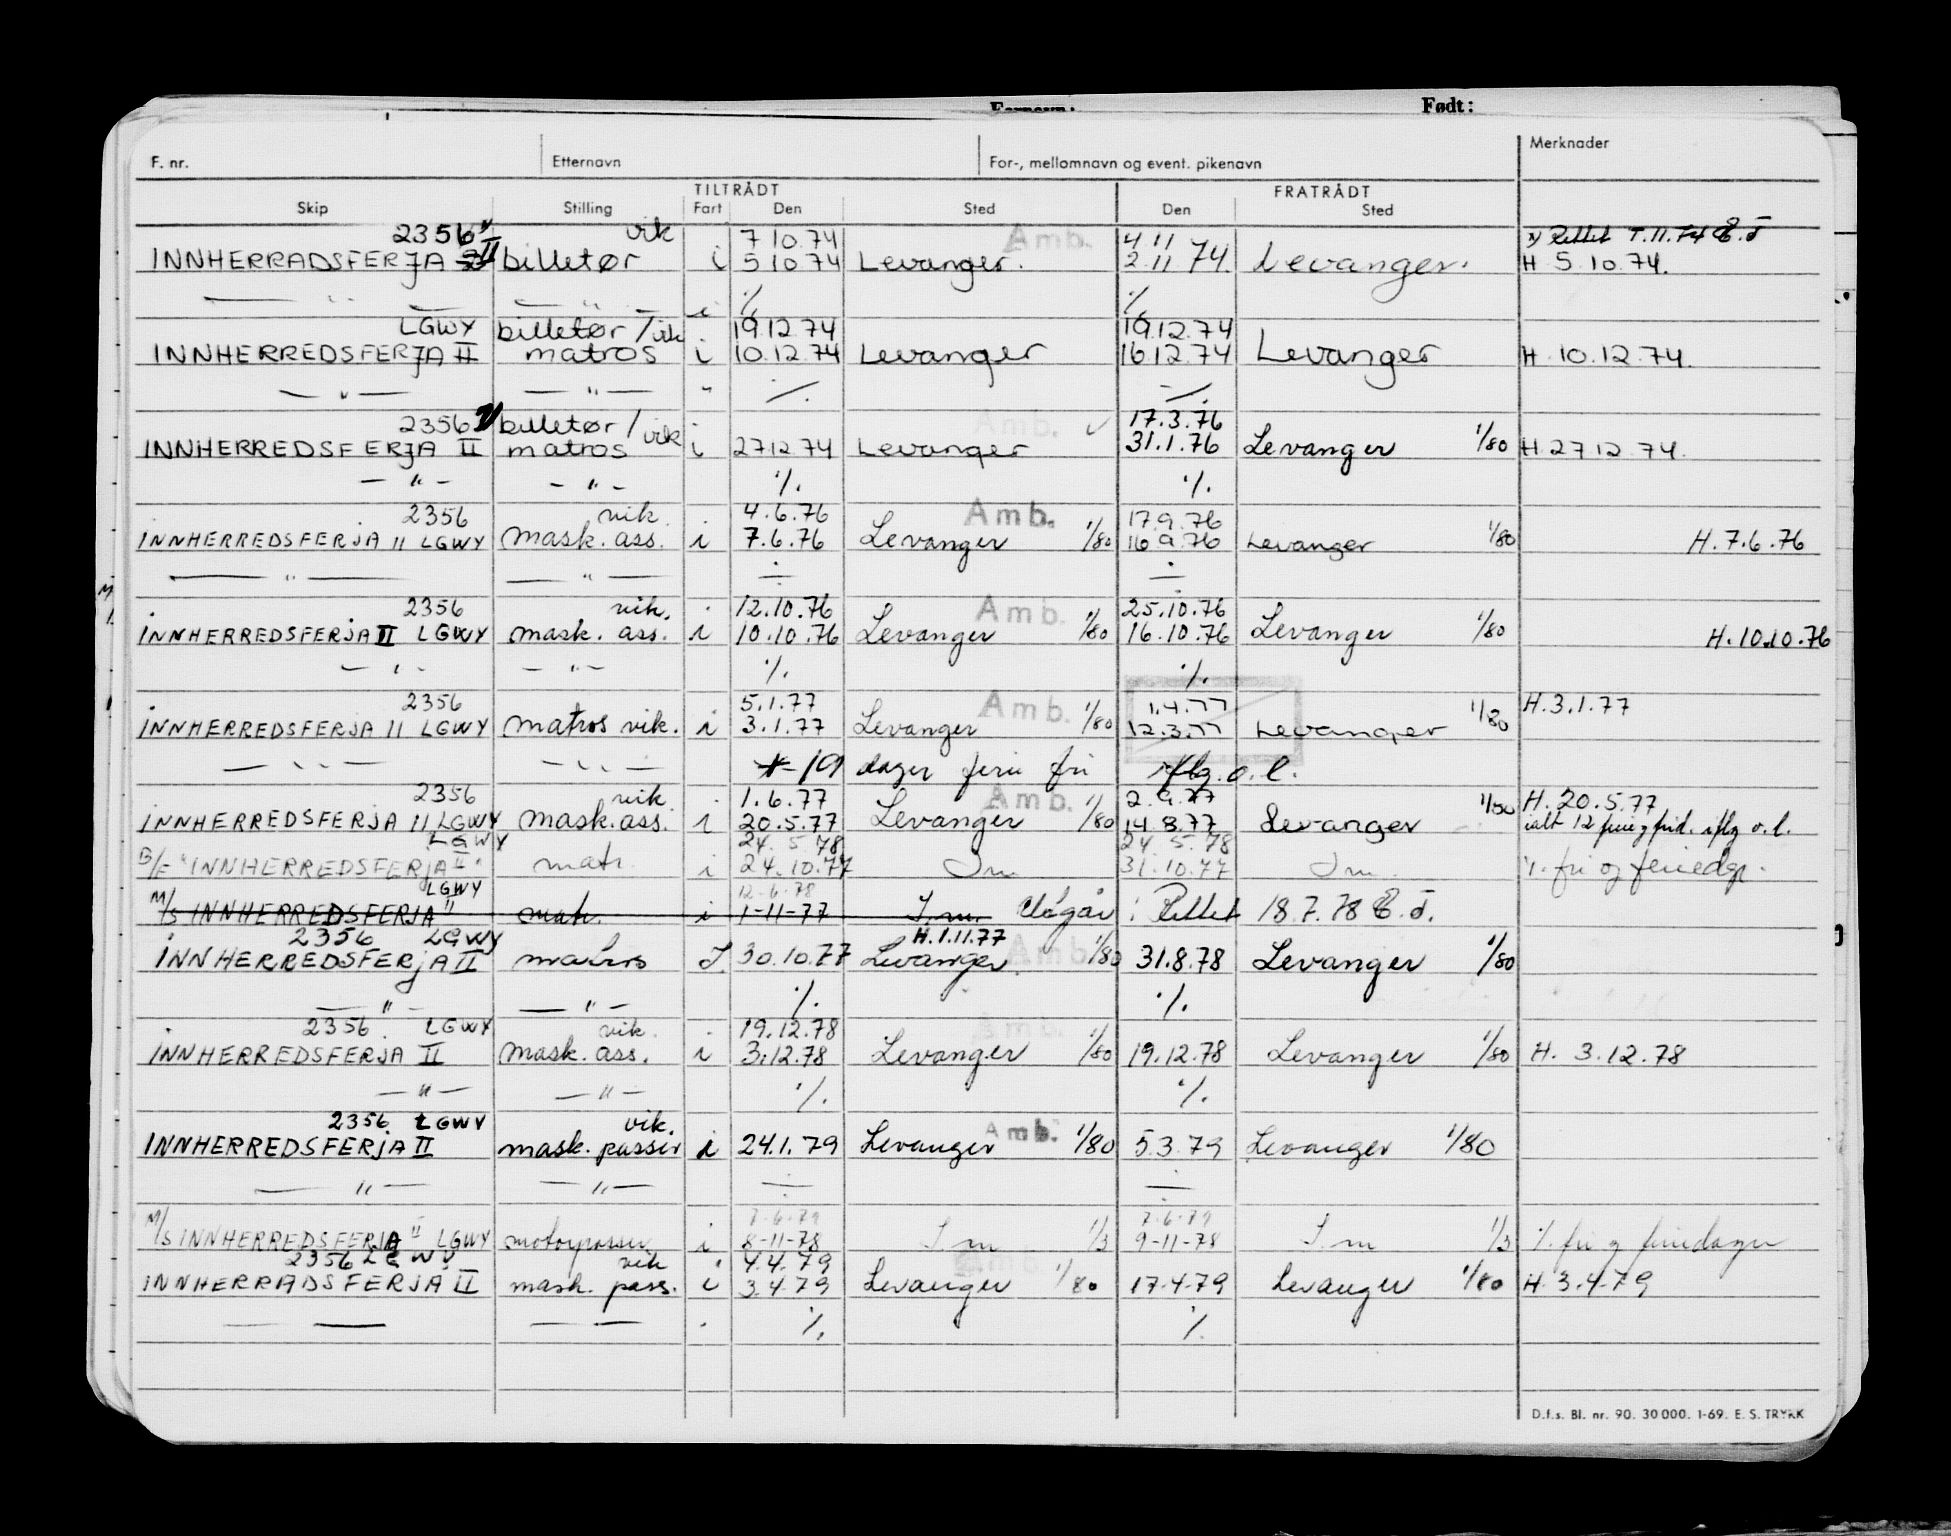 Født:
F. nr. Etternavn For-, mellomnavn og event. pikenavn Merknader
TILTRÅDT FRATRÅDT
Skip Stilling Fart Den Sted Den Sted
2356 vik 7 10.74 Amb. 4.11 Rettet 7.11.74
INNHERRADSFERJA II billetør i 5 10 74 Levanger. 2 11 74. Levanger. H 5.10.74.
— " — — " — i ·/. ·/.
LGWY billetør / vik 19.12 74 19.12.74
INNHERREDSFERJA II matros i 10.12.74 Levanger 16.12.74 Levanger H. 10.12.74.
— " — — " — " ·/. ·/.
2356 billetør / vik Amb. 17.3.76
INNHERREDSFERJA II matros i 27 12 74 Levanger 31.1.76 Levanger 1/80 H 27 12 74.
— " — — " — ·/. ·/.
2356 vik. 4.6.76 Amb. 17.9.76
INNHERREDSFERJA II LGWY mask. ass. i 7.6.76 Levanger 1/80 16.9.76 Levanger 1/80 H.7.6.76
— " — — " — ÷ ÷
2356 vik. 12.10.76 Amb. 25.10.76
INNHERREDSFERJA II LGWY mask. ass. i 10.10.76 Levanger 1/80 16.10.76 Levanger 1/80 H.10.10.76
— " — — " — ·/. ·/.
2356 5.1.77 Amb. 1.4.77 H.3.1.77
INNHERREDSFERJA II LGWY matros vik. i 3.1.77 Levanger 1/80 12.3.77 Levanger 1/80
— " — — " — 19 dager ferie fri iflg. o.l.
2356 vik. 1.6.77 Amb. 2.9.77 H. 20.5.77
INNHERREDSFERJA II LGWY mask.ass. i 20.5.77 Levanger 1/80 14.8.77 Levanger 1/80 ialt 12 ferie og frid. iflg o.l.
LGWY 24. 5 78 24. 5. 78
B/F "INNHERREDSFERJA II" matr. i 24.10.77 Im 31.10.77 Im. ·/. fri og feriedgr.
LGWY 12-6-78
M/S INNHERREDSFERJA II matr. i 1-11-77 I.m. Utgår Rettet 18.7.78
2356 LGWY H.1.11.77 Amb.
INNHERREDSFERJA II matros I. 30.10.77 Levanger 1/80 31.8.78 Levanger 1/80
— " — — " — ·/. ·/.
2356 LGWY vik. 19.12.78 Amb.
INNHERREDSFERJA II mask. ass. i 3.12.78 Levanger 1/80 19.12.78 Levanger 1/80 H. 3.12.78
— " — — " — ·/. ·/.
2356 LGWY vik. Amb.
INNHERREDSFERJA II mask. passer i 24.1.79 Levanger 1/80 5.3.79 Levanger 1/80
— " — — " — ÷ ÷
7-6-79 7-6-79
M/S INNHERREDSFERJA II LGWY motorpasser i 8-11-78 I m 1/3 9-11-78 I m 1/3 ·/. fri og feriedager
2356 LGWY vik 4.4.79 Amb.
INNHERRADSFERJA II mask. pass. i 3.4.79 Levanger 1/80 17.4.79 Levanger 1/80 H.3.4.79
— — — — ·/. ·/.
D.f.s. Bl. nr. 90. 30 000. 1-69. E. S. TRYKK